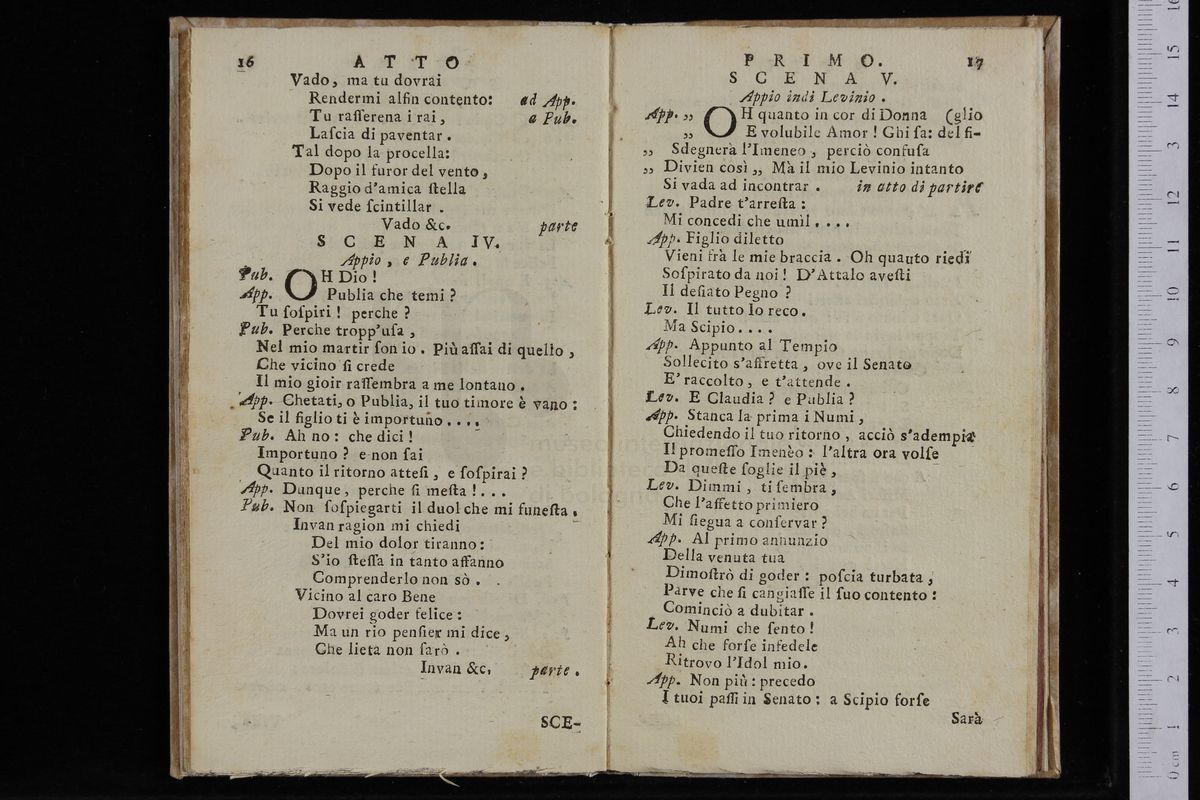 16 ATTO
Vado, ma tu dovrai
Rendermi alfin contento: ad App.
Tu raſſerena i rai, a Pub.
Laſcia di paventar.
Tal dopo la procella:
Dopo il furor del vento,
Raggio d'amica ſtella
Si vede ſcintillar.
Vado &c. parte
SCENA IV.
Appio, e Publia.
Pub. OH Dio!
App. Publia che temi?
Tu ſoſpiri! perche?
Pub. Perche tropp'uſa,
Nel mio martir ſon io. Più aſſai di quello,
Che vicino ſi crede
Il mio gioir raſſembra a me lontano.
App. Chetati, o Publia, il tuo timore è vano:
Se il figlio ti è importuno....
Pub. Ah no: che dici!
Importuno? e non ſai
Quanto il ritorno atteſi, e ſoſpirai?
App. Dunque, perche ſi meſta!...
Pub. Non ſoſpiegarti il duol che mi funeſta.
Invan ragion mi chiedi
Del mio dolor tiranno:
S'io ſteſſa in tanto affanno
Comprenderlo non sò.
Vicino al caro Bene
Dovrei goder felice:
Ma un rio penſier mi dice,
Che lieta non ſarò.
Invan &c, parte.
SCE-
PRIMO. 17
SCENA V.
Appio indi Levinio.
App. ,, OH quanto in cor di Donna (glio
,, E volubile Amor! Ghi ſa: del fi-
,, Sdegnerà l'Imeneo, perciò confuſa
,, Divien così ,, Mà il mio Levinio intanto
Si vada ad incontrar. in atto di partire
Lev. Padre t'arreſta:
Mi concedi che umìl....
App. Figlio diletto
Vieni frà le mie braccia. Oh quauto riedi
Soſpirato da noi! D'Attalo aveſti
Il deſiato Pegno?
Lev. Il tutto Io reco.
Ma Scipio....
App. Appunto al Tempio
Sollecito s'affretta, ove il Senato
E' raccolto, e t'attende.
Lev. E Claudia? e Publia?
App. Stanca la prima i Numi,
Chiedendo il tuo ritorno, acciò s'adempia
Il promeſſo Imenèo: l'altra ora volſe
Da queſte ſoglie il piè,
Lev. Dimmi, ti ſembra,
Che l'affetto primiero
Mi ſiegua a conſervar?
App. Al primo annunzio
Della venuta tua
Dimoſtrò di goder: poſcia turbata,
Parve che ſi cangiaſſe il ſuo contento:
Cominciò a dubitar.
Lev. Numi che ſento!
Ah che forſe infedele
Ritrovo l'Idol mio.
App. Non più: precedo
I tuoi paſſi in Senato: a Scipio forſe
Sarà